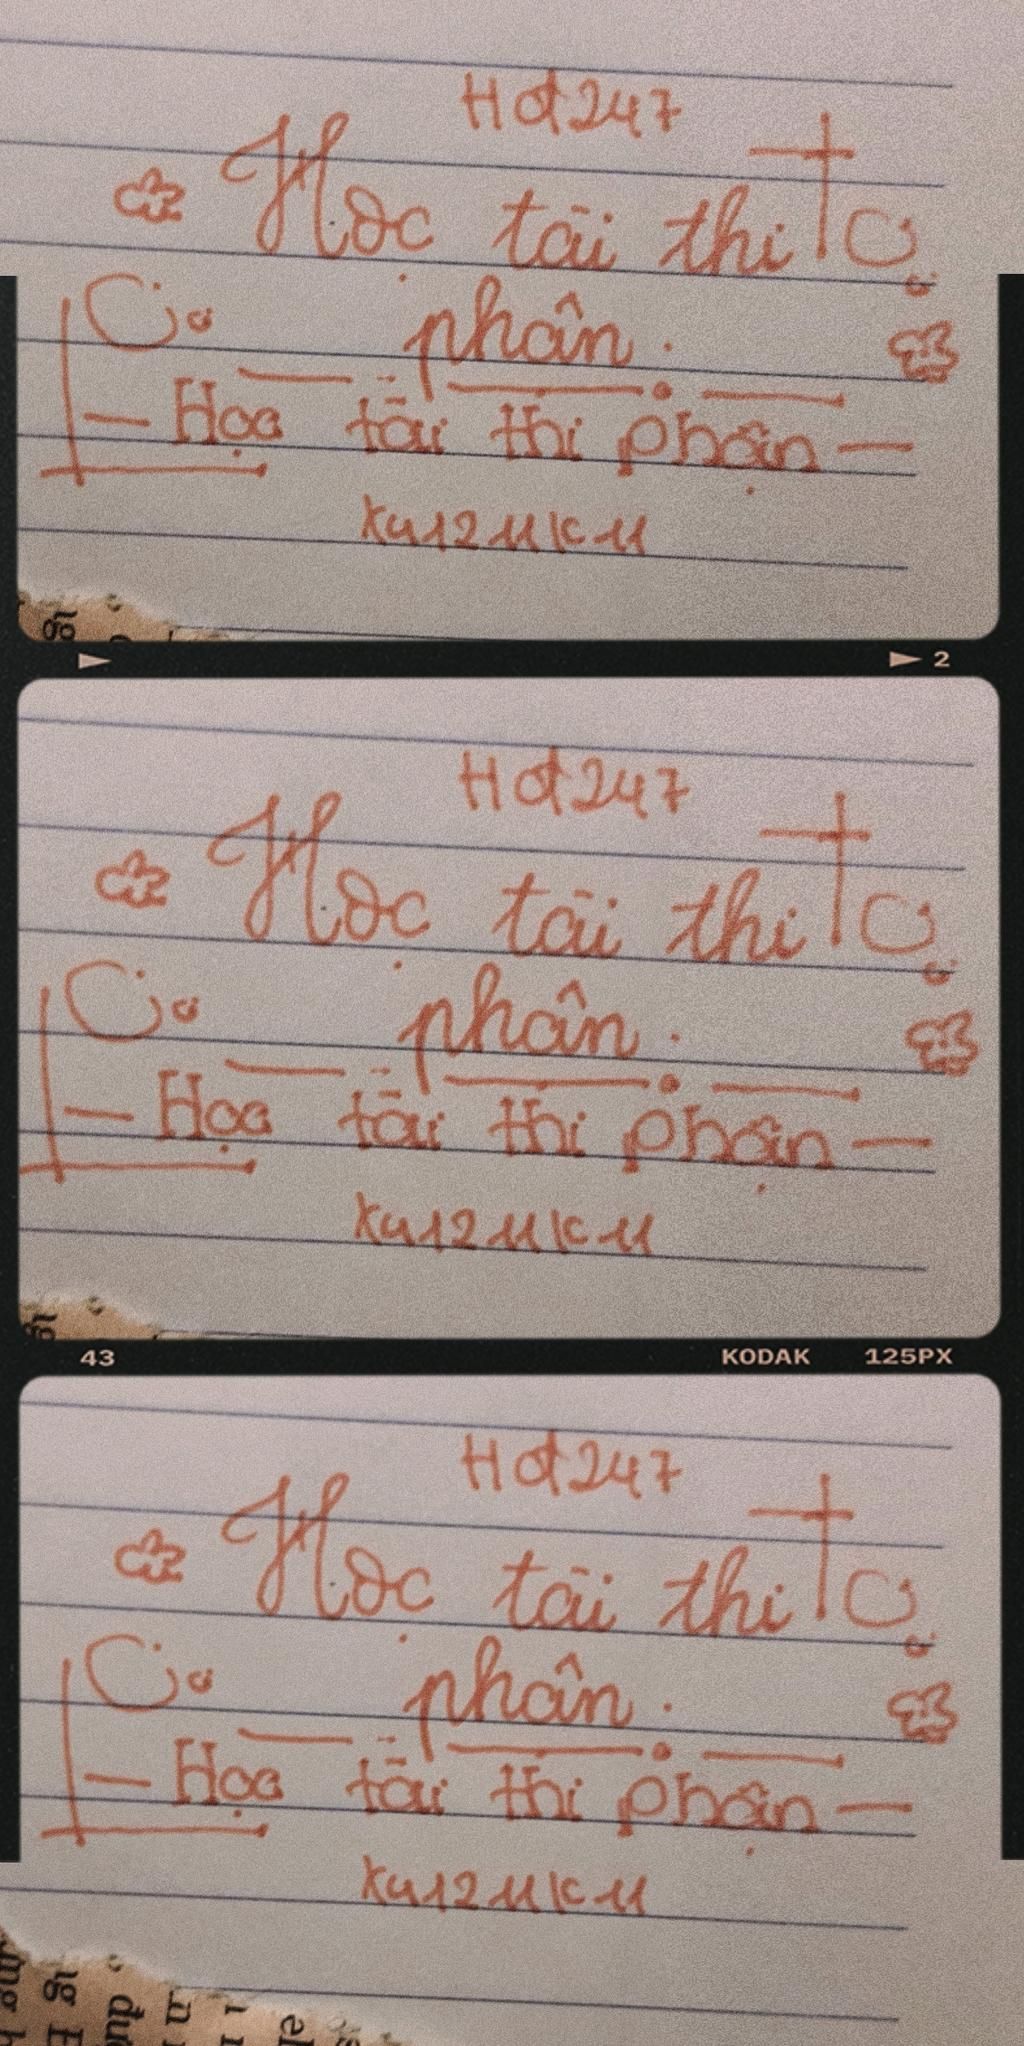 Hđ247
Học tài thi
phân.
Học tài thi phận
Xu12 11K11
2
Hđ247
Học tài thi
phân.
Học tài thi phận
Xu12 11K11
43 KODAK 125PX
Hđ247
Học tài thi
phân.
Học tài thi phận
Xu12 11K11